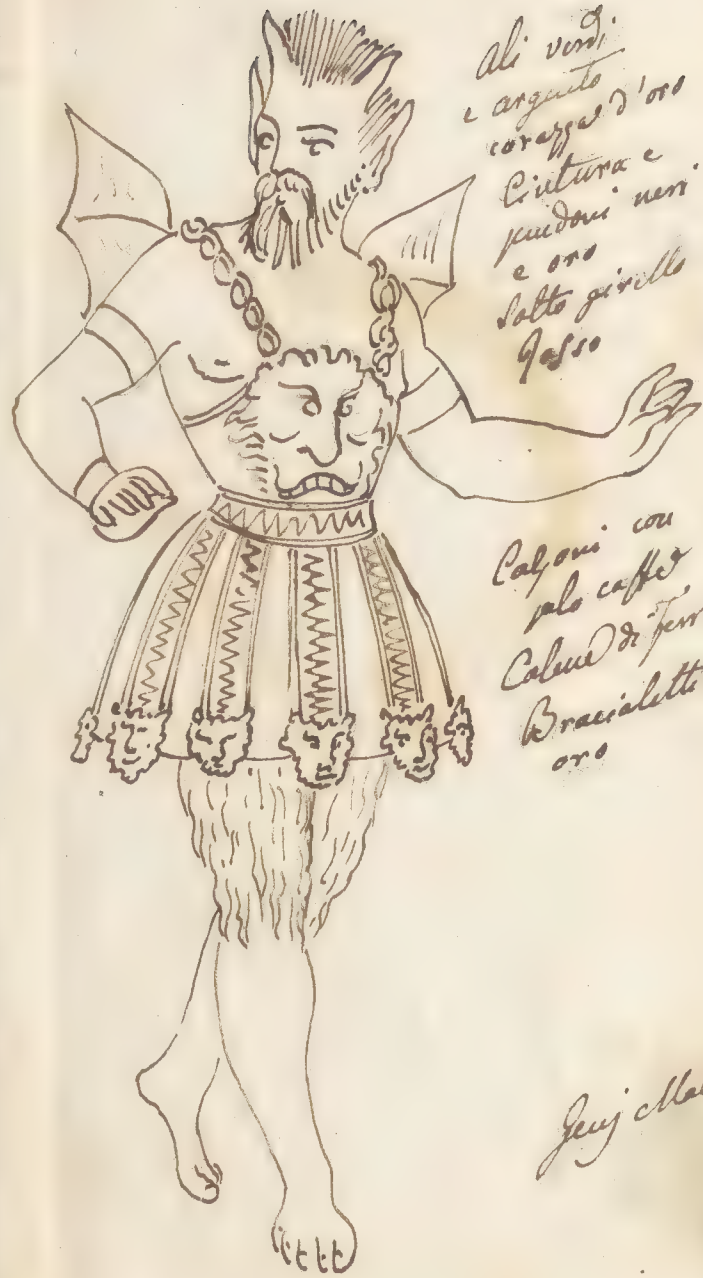 Ali verdi
e argento
corazza d'oro
Cintura e
pendoni neri
e oro
Sotto girello
Calzoni con
pelo caffè
di
Braccialetti
oro
Genj